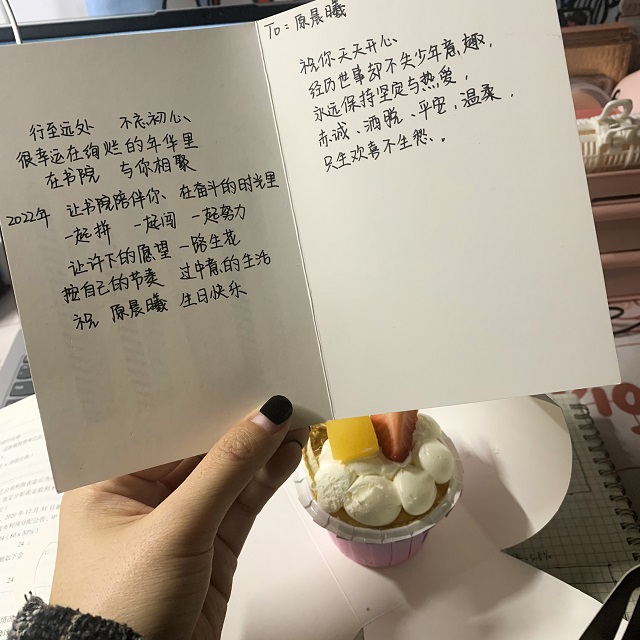 行至远处 不忘初心、
很幸运在绚烂的年华里
在书院 与你相聚
2022年 让书院陪伴你、在奋斗的时光里
一起拼 一起闯 一起努力
让许下的愿望 一路生花
按自己的节奏 过中意的生活
祝 原晨曦 生日快乐
To：原晨曦
祝你天天开心、
经历世事却不失少年意趣，
永远保持坚定与热爱，
赤诚、洒脱、平安、温柔，
只生欢喜不生愁、。